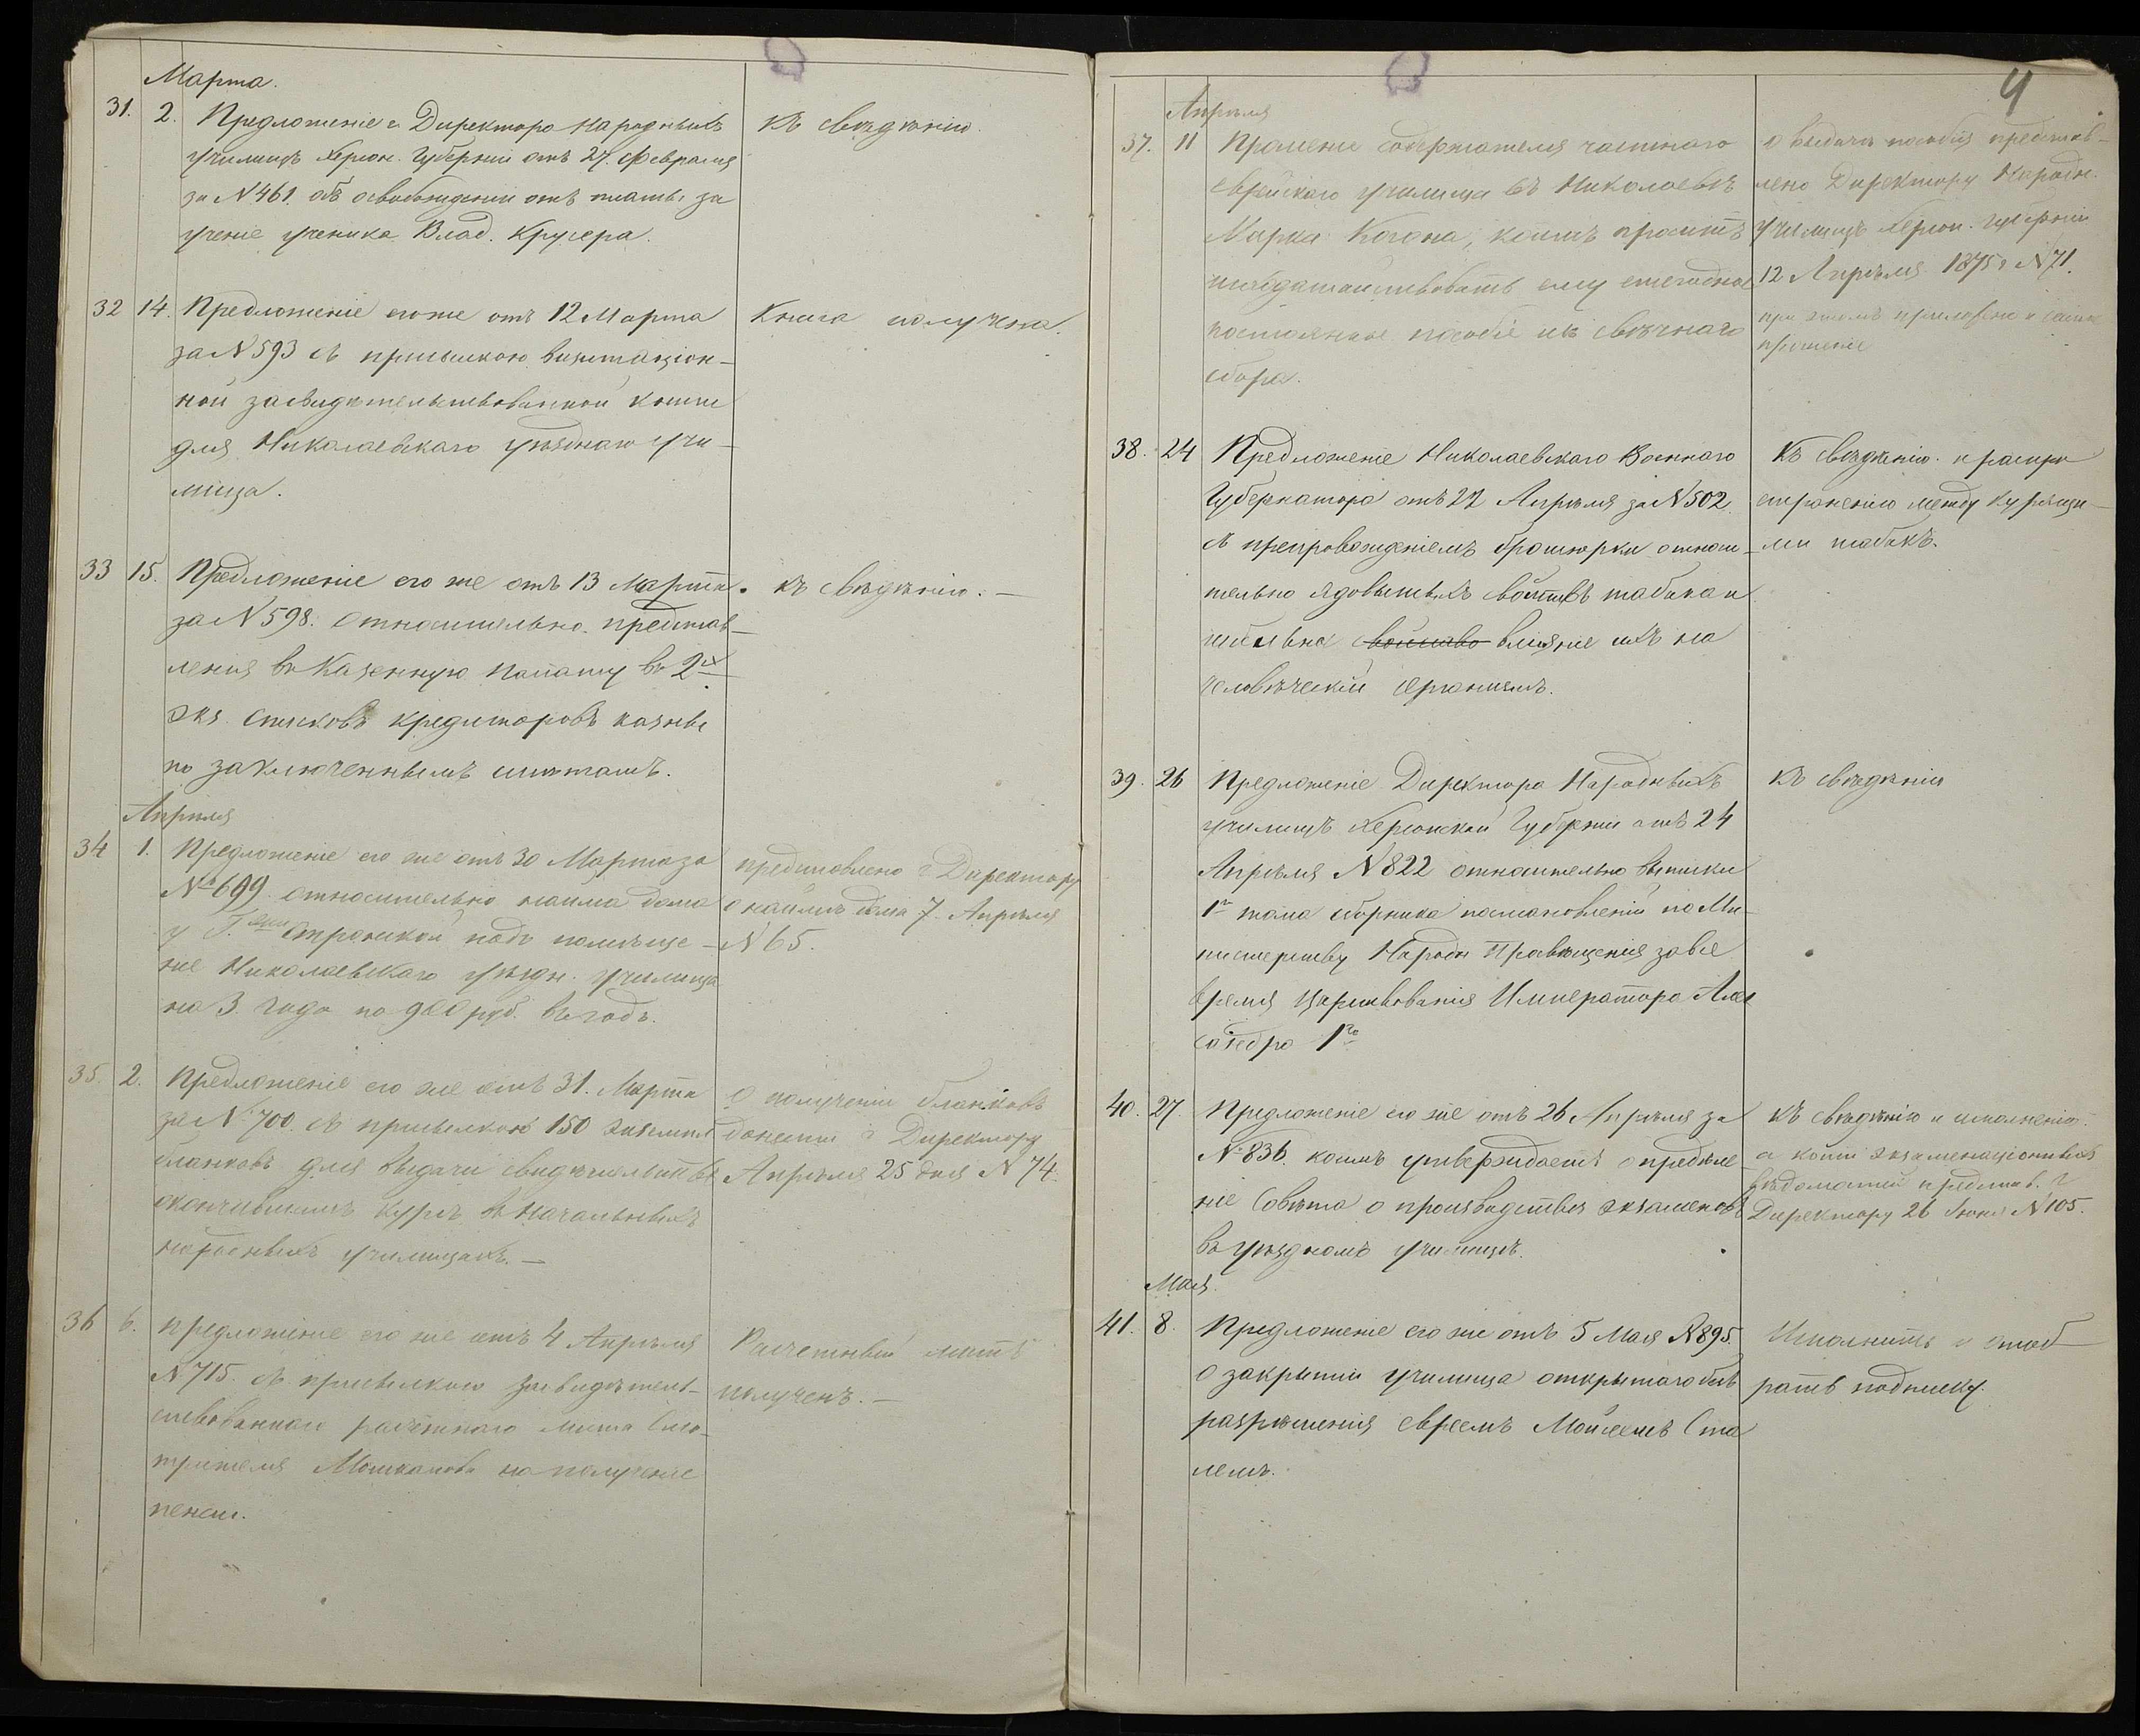 Марта.
31. 2. Предложеніе г. Директора народныхъ
училищъ Херсон. Губерніи отъ 27. Февраля
за N 461. объ освобожденіи отъ платы за
ученіе ученика Влад. Кругера.
Къ свѣдѣнію.
32 14. Предложеніе его же отъ 12 Марта
за N 593 съ присылкою визитаціон-
ной засвидѣтельствованной копіи
для Николаевскаго уѣзднаго учи-
лища.
Книга получена.
33 15. Предложеніе его же отъ 13 Марта
за N 598. относительно представ-
ленія въ Казенную палату въ 2х
экз. списковъ кредиторовъ казны
по заключеннымъ смѣтамъ.
къ свѣдѣнію. —
Апрѣля
34 1. Предложеніе его же отъ 30 Марта за
№ 699. относительно найма дома
у Г. подъ помѣще-
ніе Николаевскаго уѣздн. училища
на 3. года по 900 руб. въ годъ.
представлено г. Директору
о наймѣ дома 7. Апрѣля
N 65.
35. 2. Предложеніе его же отъ 31. Марта
за № 700. съ присылкою 150 экземпл
бланковъ для выдачи свидѣтельствъ
окончившимъ курсъ въ начальныхъ
народныхъ училищахъ. —
О полученіи бланковъ
донесено г Директору
Апрѣля 25 дня N 74.
36 6. предложеніе его же отъ 4 Апрѣля
N 715. съ присылкою засвидѣтель-
ствованнаго расчетнаго листа Смо-
трителя на полученіе
пенсіи.
Расчетный листъ
полученъ. —
4
Апрѣля
37. 11 Прошеніе содержателя частнаго
еврейскаго училища въ Николаевѣ
Марка Когона, коимъ проситъ
исходатайствовать ему ежегодное
постоянное пособіе изъ свѣчнаго
сбора.
о выдачѣ пособія представ-
лено Директору Народн.
училищъ Херсон. губерніи
12 Апрѣля 1875 г N 71.
при этомъ приложено и самое
прошеніе
38. 24 Предложеніе Николаевскаго Военнаго
Губернатора отъ 22 Апрѣля за N 502
съ препровожденіемъ брошюрки относи-
тельно ядовитыхъ свойствъ табака и
гибельно свойство вліяніе ихъ на
человѣческій организмъ.
Къ свѣдѣнію и распро
страненію между курящи-
ми табакъ.
39. 26 Предложеніе Директора Народныхъ
училищъ Херсонской Губерніи отъ 24
Апрѣля N 822 относительно выписки
1го тома сборника постановленій по Ми-
нистерству Народн Просвѣщенія за все
время царствованія Императора Алек
сандра 1го
Къ свѣдѣнію
40. 27. Предложеніе его же отъ 26 Апрѣля за
№ 836. коимъ утверждаетъ опредѣле
ніе Совѣта о производствѣ экзаменовъ
въ уѣздномъ училищѣ.
къ свѣдѣнію и исполненію.
а копіи экзаменаціонныхъ
вѣдомостей представ. г
Директору 26 Іюня N 105.
Мая.
41. 8. Предложеніе его же отъ 5 Мая N 895.
О закрытіи училища открытаго безъ
разрѣшенія евреемъ Мойсеемъ Ста
лемъ.
Исполнить и отоб
рать подписку.